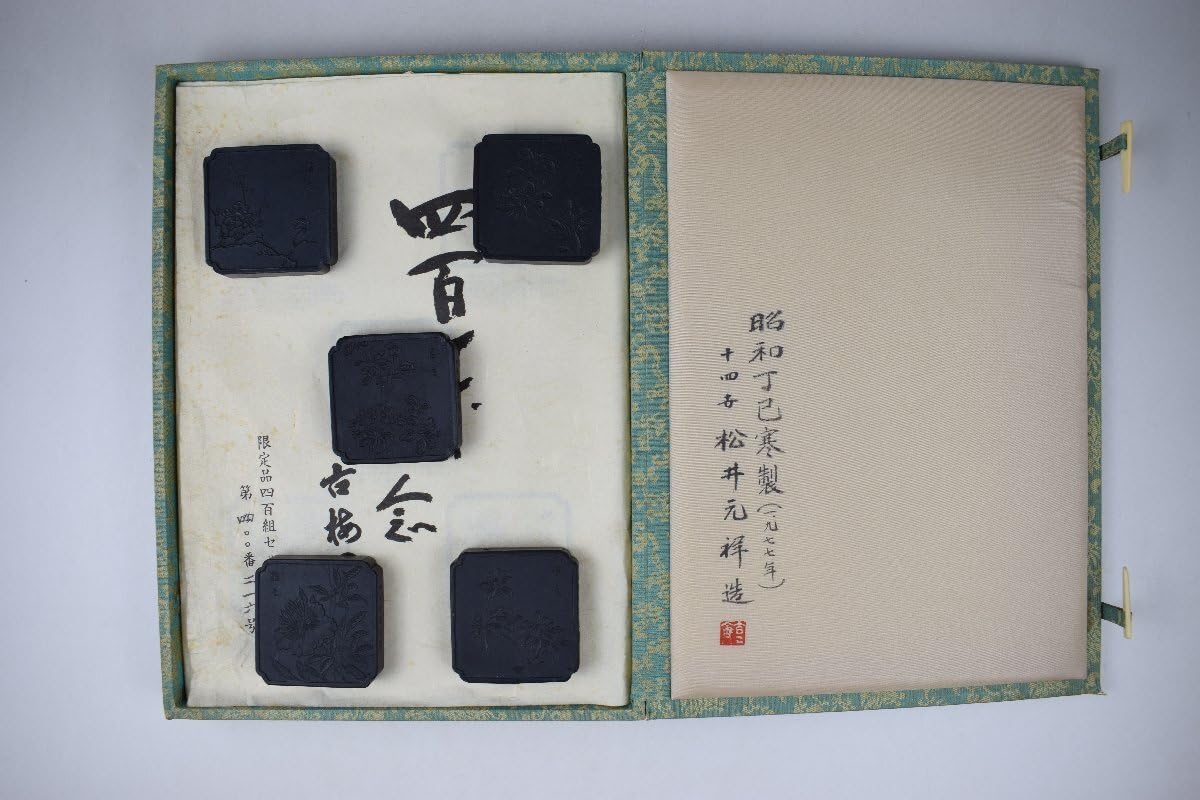 昭和丁巳寒製(一九七七年)
十四世 松井元祥造
四百
念
古梅
限定品四百組セ
第四〇〇番二一六号